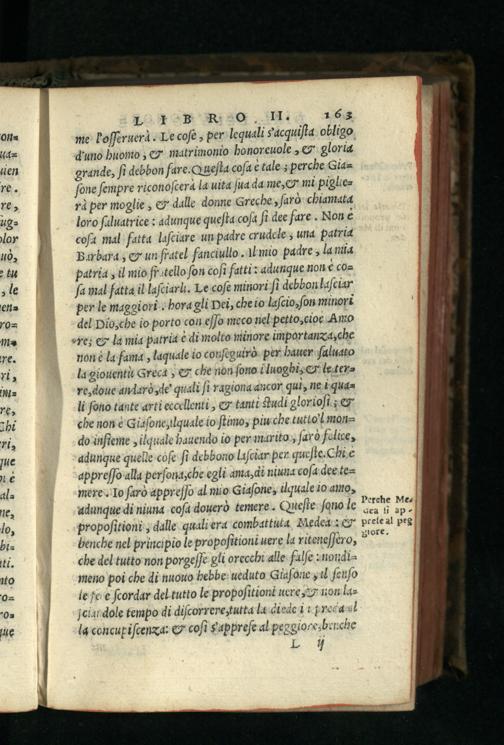 LIBRO II. 163
me l'osserverà. Le cose, per lequali s'acquista obligo
d'uno huomo, & matrimonio honorevole, & gloria
grande, si debbon fare. Questa cosa è tale; perche Gia-
sone sempre riconoscerà la uita sua da me, & mi piglie-
rà per moglie, & dalle donne Greche, sarò chiamata
loro saluatrice: adunque questa cosa si dee fare. Non è
cosa mal fatta lasciare un padre crudele, una patria
Barbara, & un fratel fanciullo. Il mio padre, la mia
patria, il mio fratello son cosi fatti: adunque non è co-
sa mal fatta il lasciarli. Le cose minori si debbon lasciar
per le maggiori. hora gli Dei, che io lascio, son minori
del Dio, che io porto con esso meco nel petto, cioe Amo
re; & la mia patria è di molto minore importanza, che
non è la fama, laquale io conseguirò per hauer saluato
la giouentù Greca, & che non sono i luoghi, & le ter-
re, doue andarò, de' quali si ragiona ancor qui, ne i qua-
li sono tante arti eccellenti, & tanti studi gloriosi; &
che non è Giasone, ilquale io stimo, piu che tutto'l mon-
do insieme, ilquale hauendo io per marito, sarò felice,
adunque quelle cose si debbono lasciar per queste. Chi è
appresso alla persona, che egli ama, di niuna cosa dee te-
mere. Io sarò appresso al mio Giasone, ilquale io amo,
adunque di niuna cosa douerò temere. Queste sono le
propositioni, dalle quali era combattuta Medea: &
benche nel principio le propositioni uere la ritenessero,
che del tutto non porgesse gli orecchi alle false: nondi-
meno poi che di nuouo hebbe ueduto Giasone, il senso
le fece scordar del tutto le propositioni uere, & non la-
sciandole tempo di discorrere, tutta la diede in preda al
la concupiscenza: & cosi s'apprese al peggiore, benche
L ij
Perche Me-
dea si ap-
prese al peg
giore.